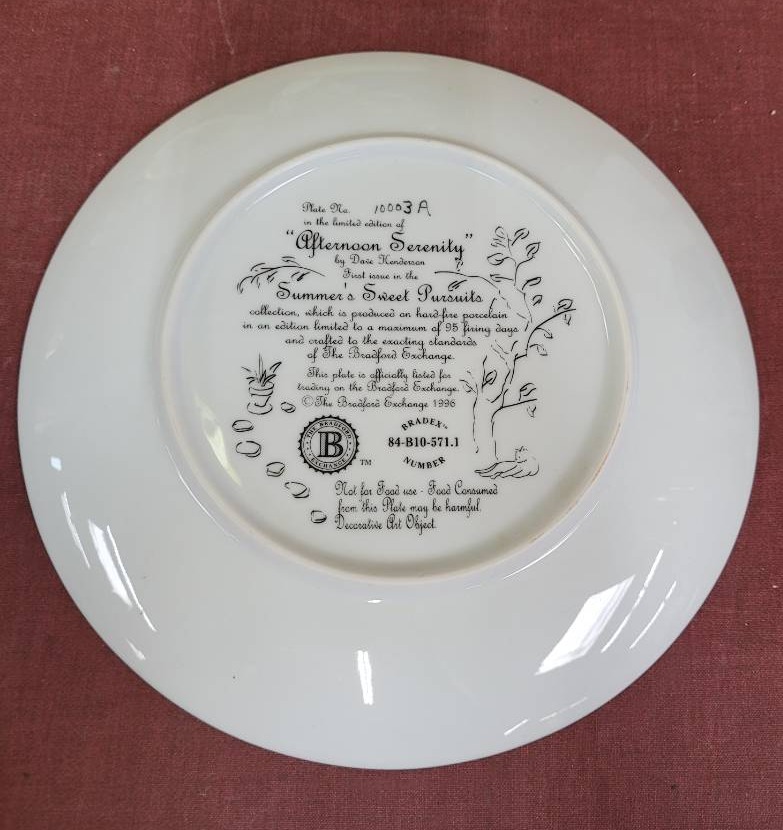 Plate No. 10003A
in the limited edition of
"Afternoon Serenity"
by Dave Henderson
First issue in the
Summer's Sweet Pursuits
collection, which is produced on hard-fire porcelain
in an edition limited to a maximum of 95 firing days
and crafted to the exacting standards
of The Bradford Exchange.
This plate is officially listed for
trading on the Bradford Exchange.
©The Bradford Exchange 1996
THE BRADFORD
B
EXCHANGE
TM
BRADEX™
84-B10-571.1
NUMBER
Not for Food use - Food Consumed
from this Plate may be harmful.
Decorative Art Object.